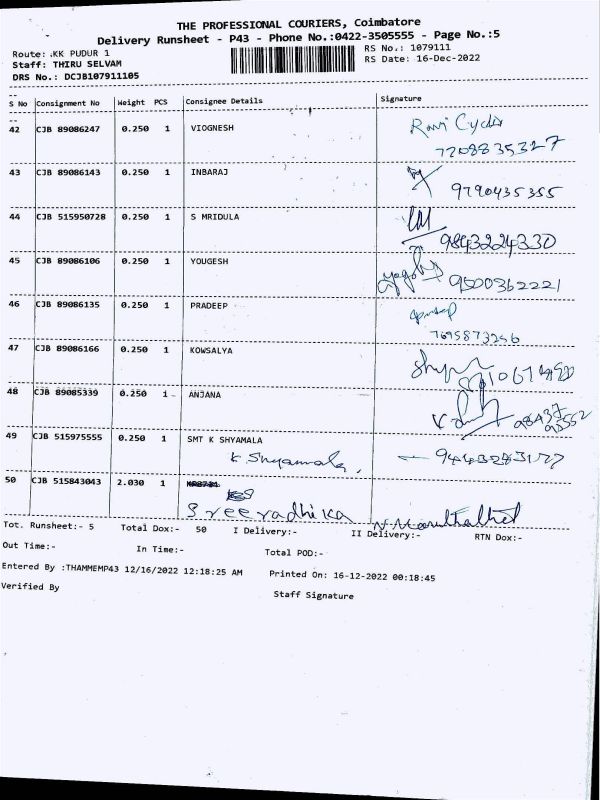 THE PROFESSIONAL COURIERS, Coimbatore
Delivery Runsheet - P43 - Phone No.:0422-3505555 - Page No.:5
Route: .KK PUDUR 1
RS No.: 1079111
Staff: THIRU SELVAM
RS Date: 16-Dec-2022
DRS No.: DCJB107911105
S No Consignment No Weight PCS Consignee Details Signature
42 CJB 89086247 0.250 1 VIOGNESH Ravi
7708835327
43 CJB 89086143 0.250 1 INBARAJ
9790435355
44 CJB 515950728 0.250 1 S MRIDULA
9843224330
45 CJB 89086106 0.250 1 YOUGESH
9500362221
46 CJB 89086135 0.250 1 PRADEEP
7695873256
47 CJB 89086166 0.250 1 KOWSALYA
48 CJB 89085339 0.250 1 ANJANA
49 CJB 515975555 0.250 1 SMT K SHYAMALA
K Shyamala,
50 CJB 515843043 2.030 1
Sreeradhika
Tot. Runsheet:- 5 Total Dox:- 50 I Delivery:- II Delivery:- RTN Dox:-
Out Time:- In Time:- Total POD:-
Entered By :THAMMEMP43 12/16/2022 12:18:25 AM Printed On: 16-12-2022 00:18:45
Verified By Staff Signature